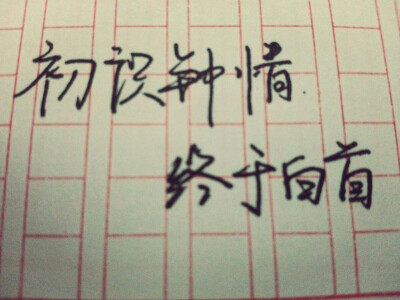 初识钟情
终于白首